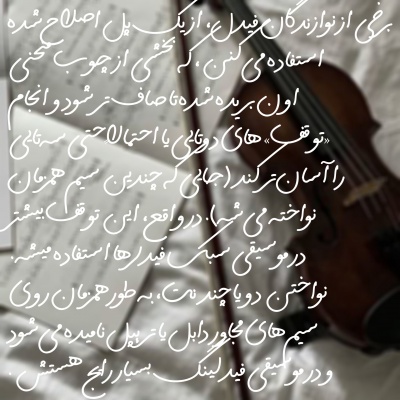 برخی از نوازندگان فیدل، از یک پل اصلاح شده
استفاده می کنن ، که بخشی از چوب منحنی
اون بریده شده تا صاف تر شود و انجام
«توقف» های دوتایی یا احتمالا حتی سه تایی
را آسان تر کند (جایی که چندین سیم همزمان
نواخته می شه). در واقع، این توقف بیشتر
در موسیقی سبک فیدلرها استفاده میشه.
نواختن دو یا چند نت، به طور همزمان روی
سیم های مجاور دابل یا تریپل نامیده می شود
و در موسیقی فیدلینگ بسیار رایج هستش .